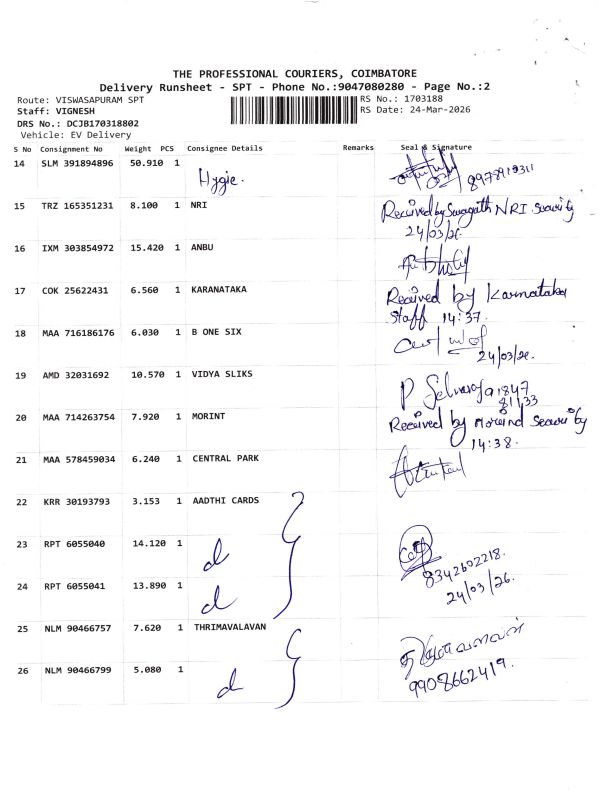 THE PROFESSIONAL COURIERS, COIMBATORE
Delivery Runsheet - SPT - Phone No.:9047080280 - Page No.:2
Route: VISWASAPURAM SPT RS No.: 1703188
Staff: VIGNESH RS Date: 24-Mar-2026
DRS No.: DCJB170318802
Vehicle: EV Delivery
S No Consignment No Weight PCS Consignee Details Remarks Seal & Signature
14 SLM 391894896 50.910 1 Hygie.
15 TRZ 165351231 8.100 1 NRI Received by Swagath NRI Security
24/03/26.
16 IXM 303854972 15.420 1 ANBU
17 COK 25622431 6.560 1 KARANATAKA Received by Karnataka
Staff 14:37
18 MAA 716186176 6.030 1 B ONE SIX
24/03/26.
19 AMD 32031692 10.570 1 VIDYA SLIKS
20 MAA 714263754 7.920 1 MORINT Received by Morind Security
14:38.
21 MAA 578459034 6.240 1 CENTRAL PARK
22 KRR 30193793 3.153 1 AADTHI CARDS
23 RPT 6055040 14.120 1 d
8342602218.
24 RPT 6055041 13.890 1 d 24/03/26.
25 NLM 90466757 7.620 1 THRIMAVALAVAN
26 NLM 90466799 5.080 1 d 9908662419.